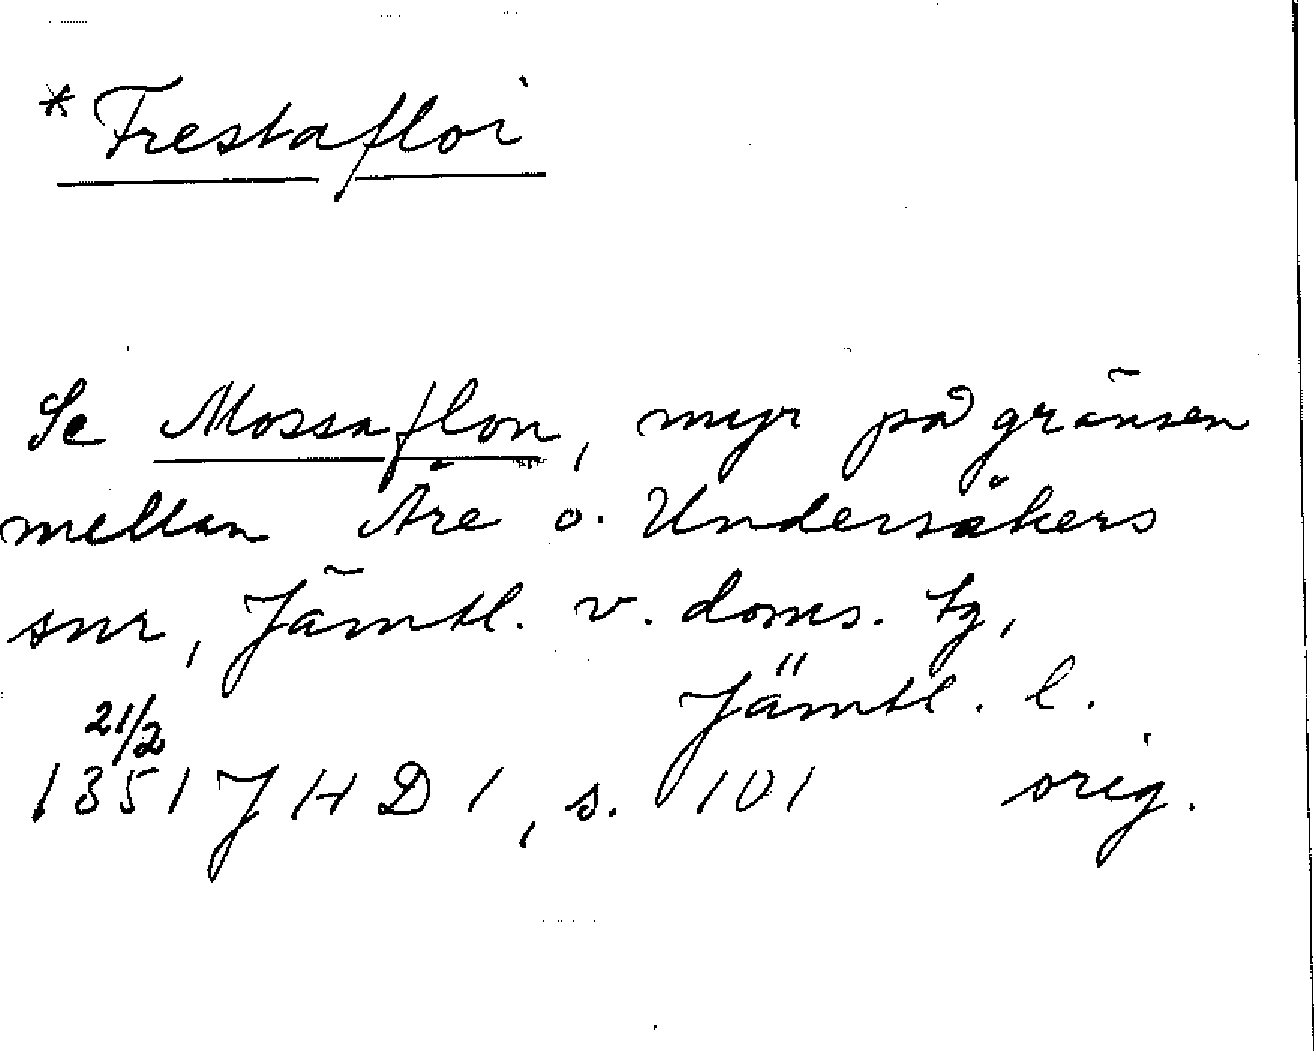 * Frestafloi
Se Mossaflon, myr på gränsen
mellan Åre o. Undersåkers
snr, Jämtl. v. doms. tg,
Jämtl. l.
21/2
1351 JHD 1, s. 101 orig.